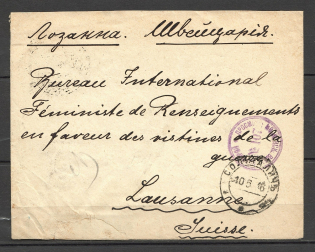 Лозанна. Швейцарія.
Bureau International
Féministe de Renseignements
en faveur des vistines de la
guerre
Lausanne
Suisse.
10 5 16